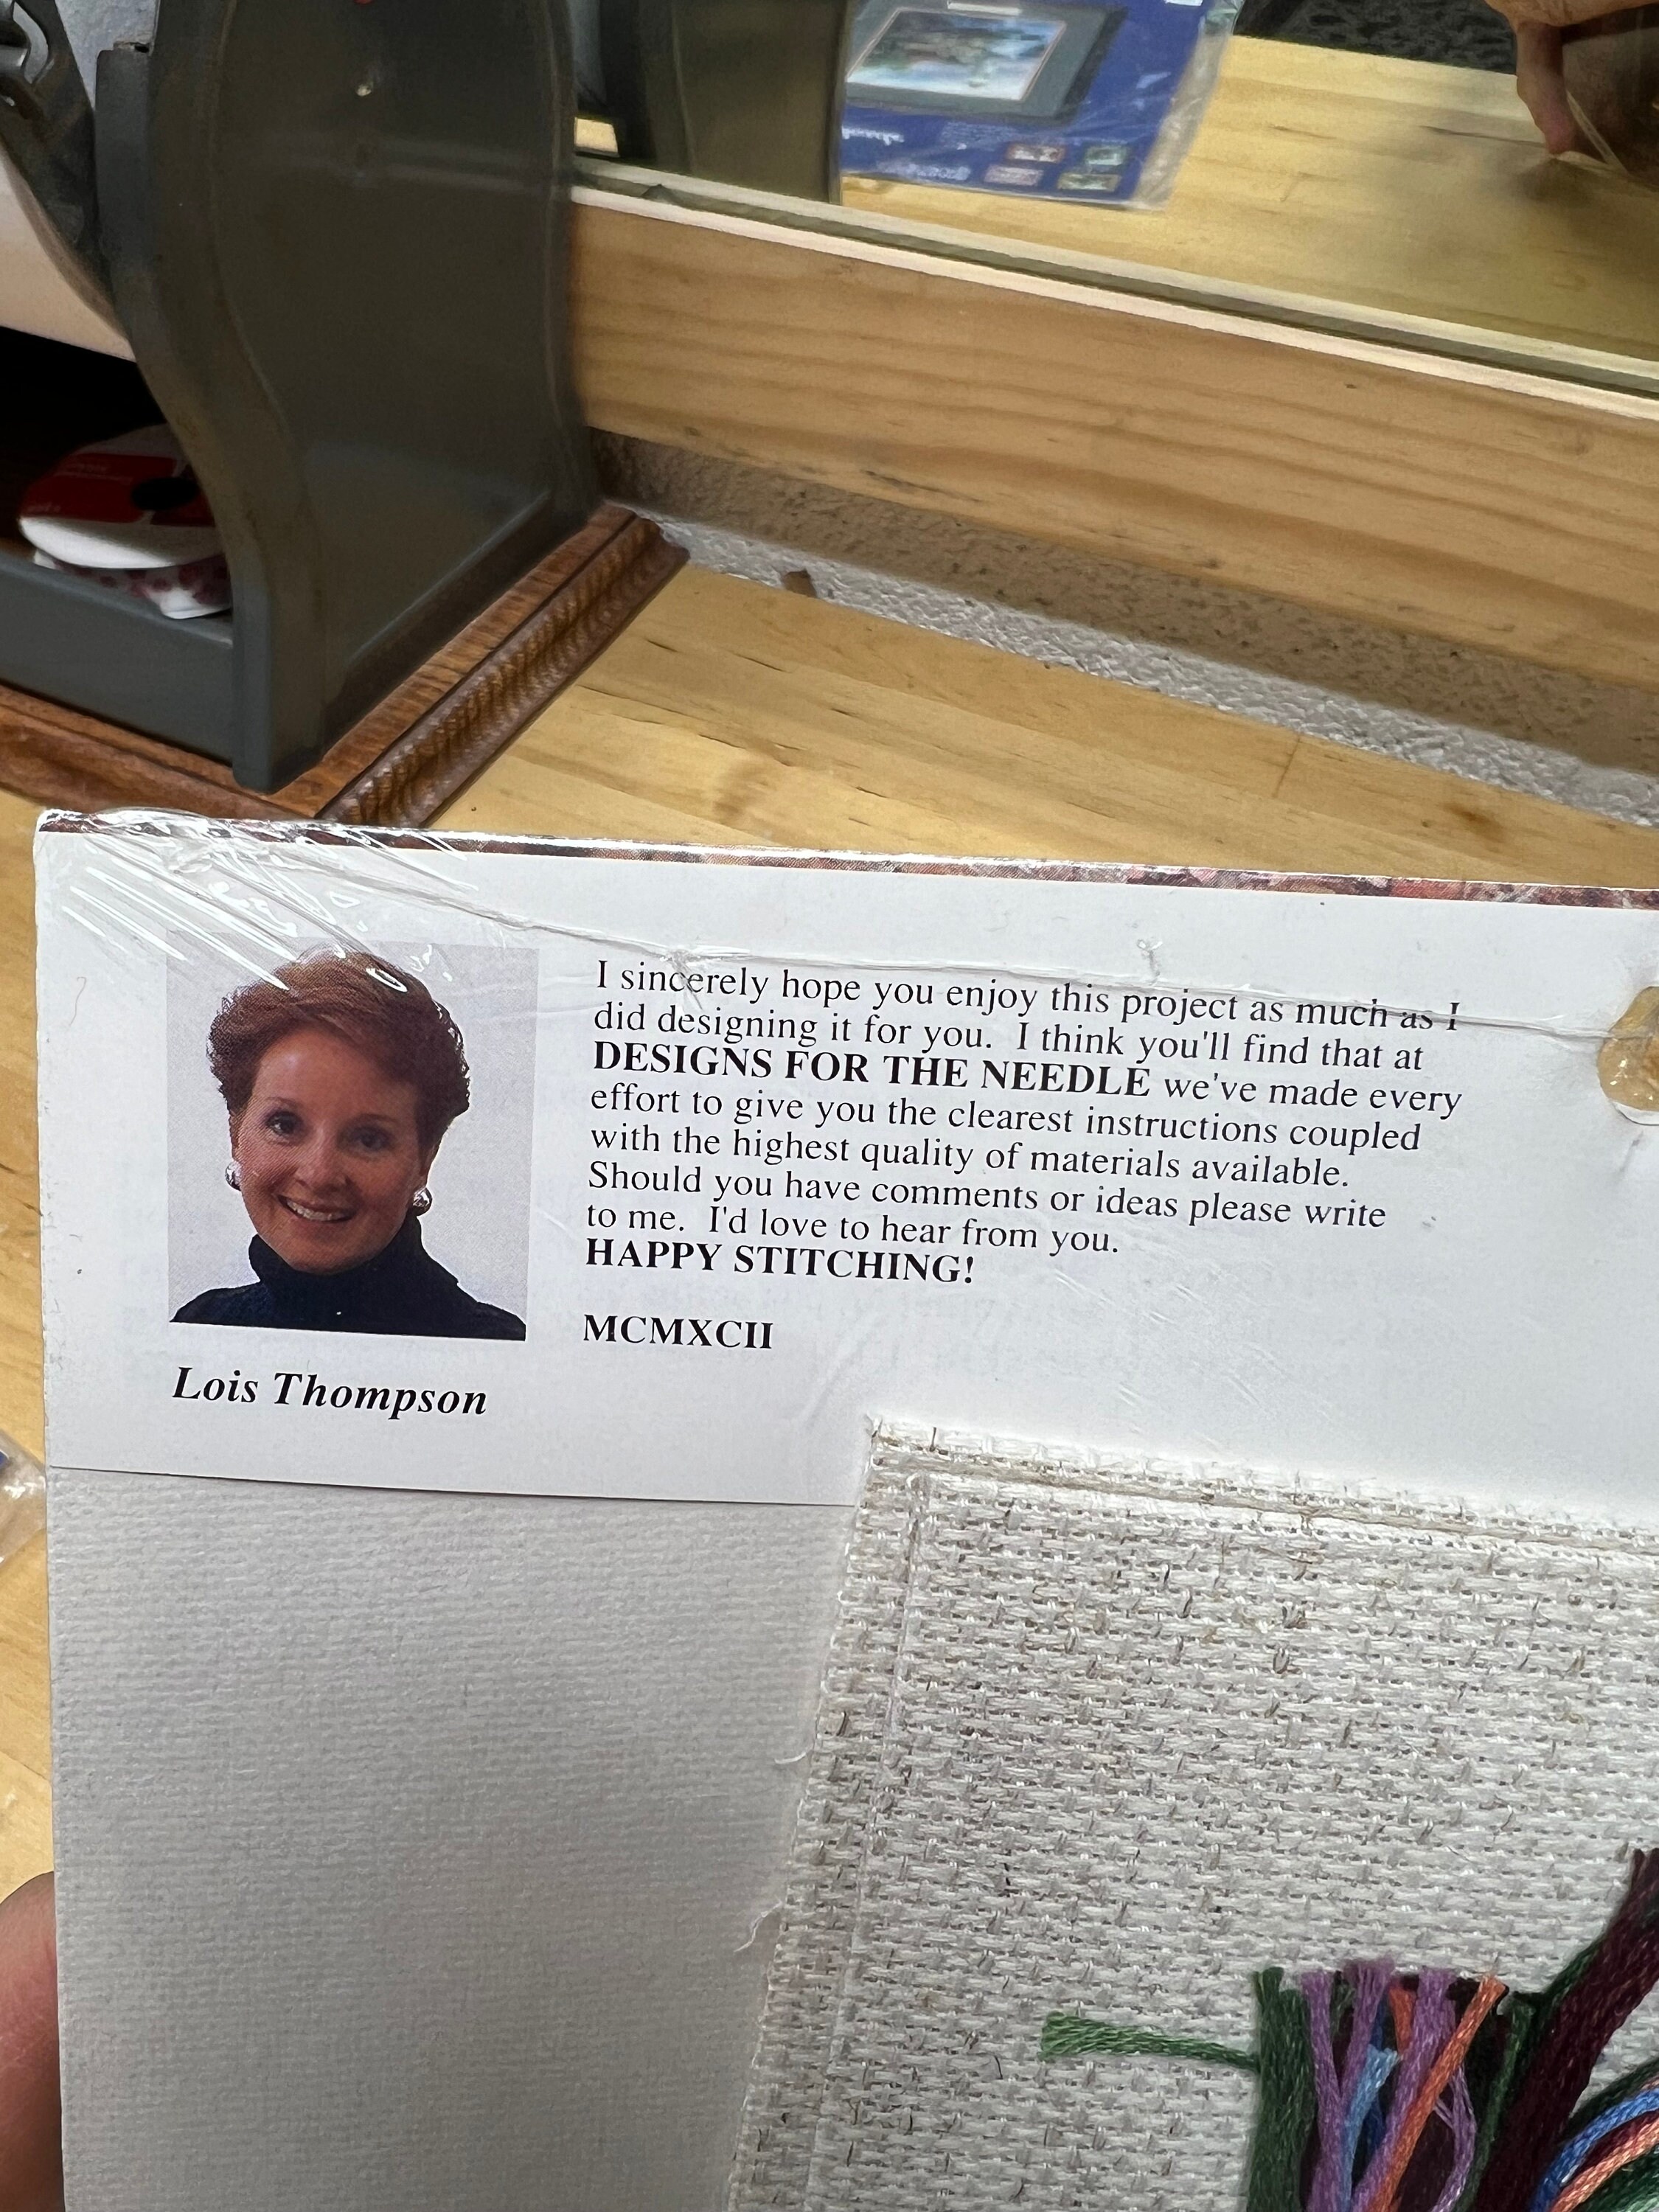 I sincerely hope you enjoy this project as much as I
did designing it for you. I think you'll find that at
DESIGNS FOR THE NEEDLE we've made every
effort to give you the clearest instructions coupled
with the highest quality of materials available.
Should you have comments or ideas please write
to me. I'd love to hear from you.
HAPPY STITCHING!
MCMXCII
Lois Thompson